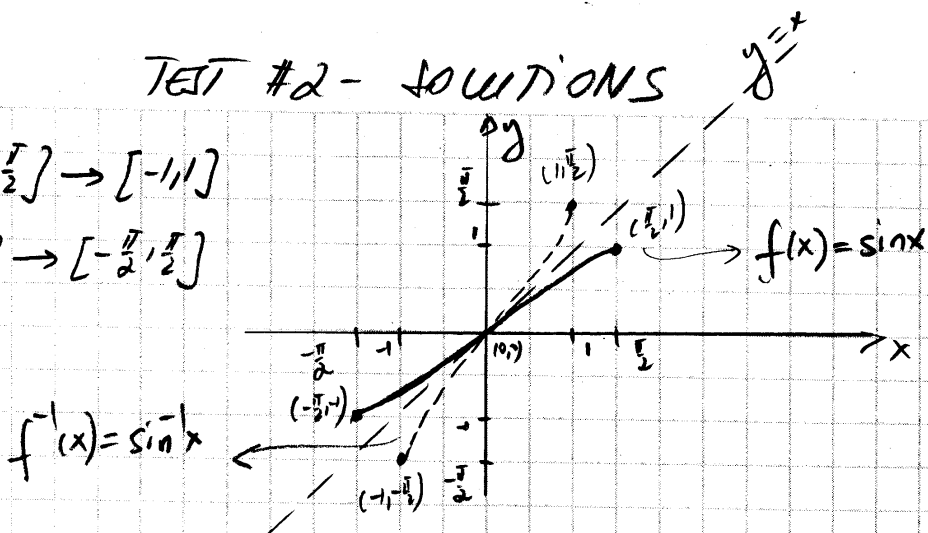 TEST #2 - SOLUTIONS
y=x
π/2] → [-1,1]
→ [-π/2, π/2]
y
(1,π/2)
π/2
1
(π/2,1)
f(x) = sinx
-π/2 -1 (0,0) 1 π/2 x
(-π/2,-1)
-1
f⁻¹(x) = sin⁻¹x
(-1,-π/2)
-π/2